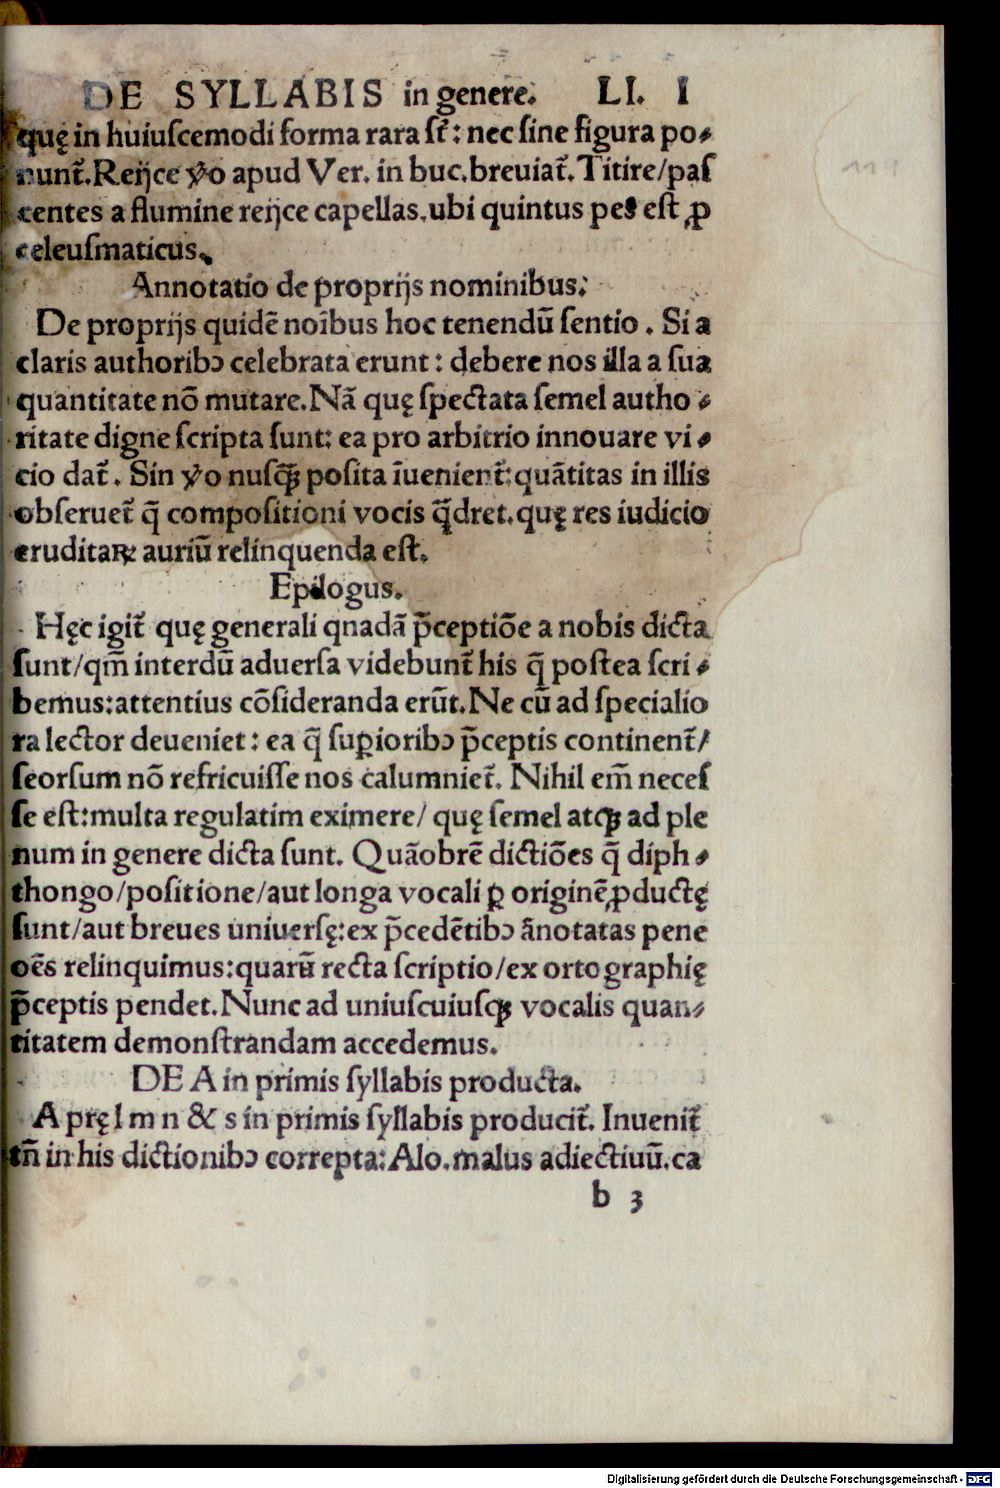 DE SYLLABIS in genere. LI. I
quę in huiuſcemodi forma rara ſt̃: nec ſine figura po⸗
nunt̃. Reĳce ꝟo apud Ver. in buc. breuiat̃. Titire/paſ
centes a flumine reĳce capellas. ubi quintus pes eſt ꝓ
celeuſmaticus.
Annotatio de proprĳs nominibus.
De proprĳs quidē noībus hoc tenendū ſentio. Si a
claris authoribꝰ celebrata erunt: debere nos illa a ſua
quantitate nō mutare. Nā quę ſpectata ſemel autho⸗
ritate digne ſcripta ſunt: ea pro arbitrio innouare vi⸗
cio dat̃. Sin ꝟo nuſꝙ̃ poſita īuenient̃: quātitas in illis
obſeruet̃ q̄ compoſitioni vocis q̄dret. quę res iudicio
eruditaꝝ auriū relinquenda eſt.
Epilogus.
Hęc igit̃ quę generali qnadā p̄ceptiōe a nobis dicta
ſunt/qm̄ interdū aduerſa videbunt̃ his q̄ poſtea ſcri⸗
bemus: attentius cōſideranda erūt. Ne cū ad ſpecialio
ra lector deueniet: ea q̄ ſuꝑioribꝰ p̄ceptis continent̃/
ſeorſum nō refricuiſſe nos calumniet̃. Nihil em̄ neceſ
ſe eſt: multa regulatim eximere/ quę ſemel atꝙ ad ple
num in genere dicta ſunt. Quāobrē dictiōes q̄ diph⸗
thongo/poſitione/aut longa vocali ꝑ originē ꝓductę
ſunt/aut breues uniuerſę: ex p̄cedētibꝰ ānotatas pene
oēs relinquimus: quarū recta ſcriptio/ex ortographię
p̄ceptis pendet. Nunc ad uniuſcuiuſꝙ vocalis quan⸗
titatem demonſtrandam accedemus.
DE A in primis ſyllabis producta.
A pręl m n & s in primis ſyllabis producit̃. Inuenit̃
tn̄ in his dictionibꝰ correpta: Alo. malus adiectiuū. ca
b 3
Digitalisierung gefördert durch die Deutsche Forschungsgemeinschaft - DFG